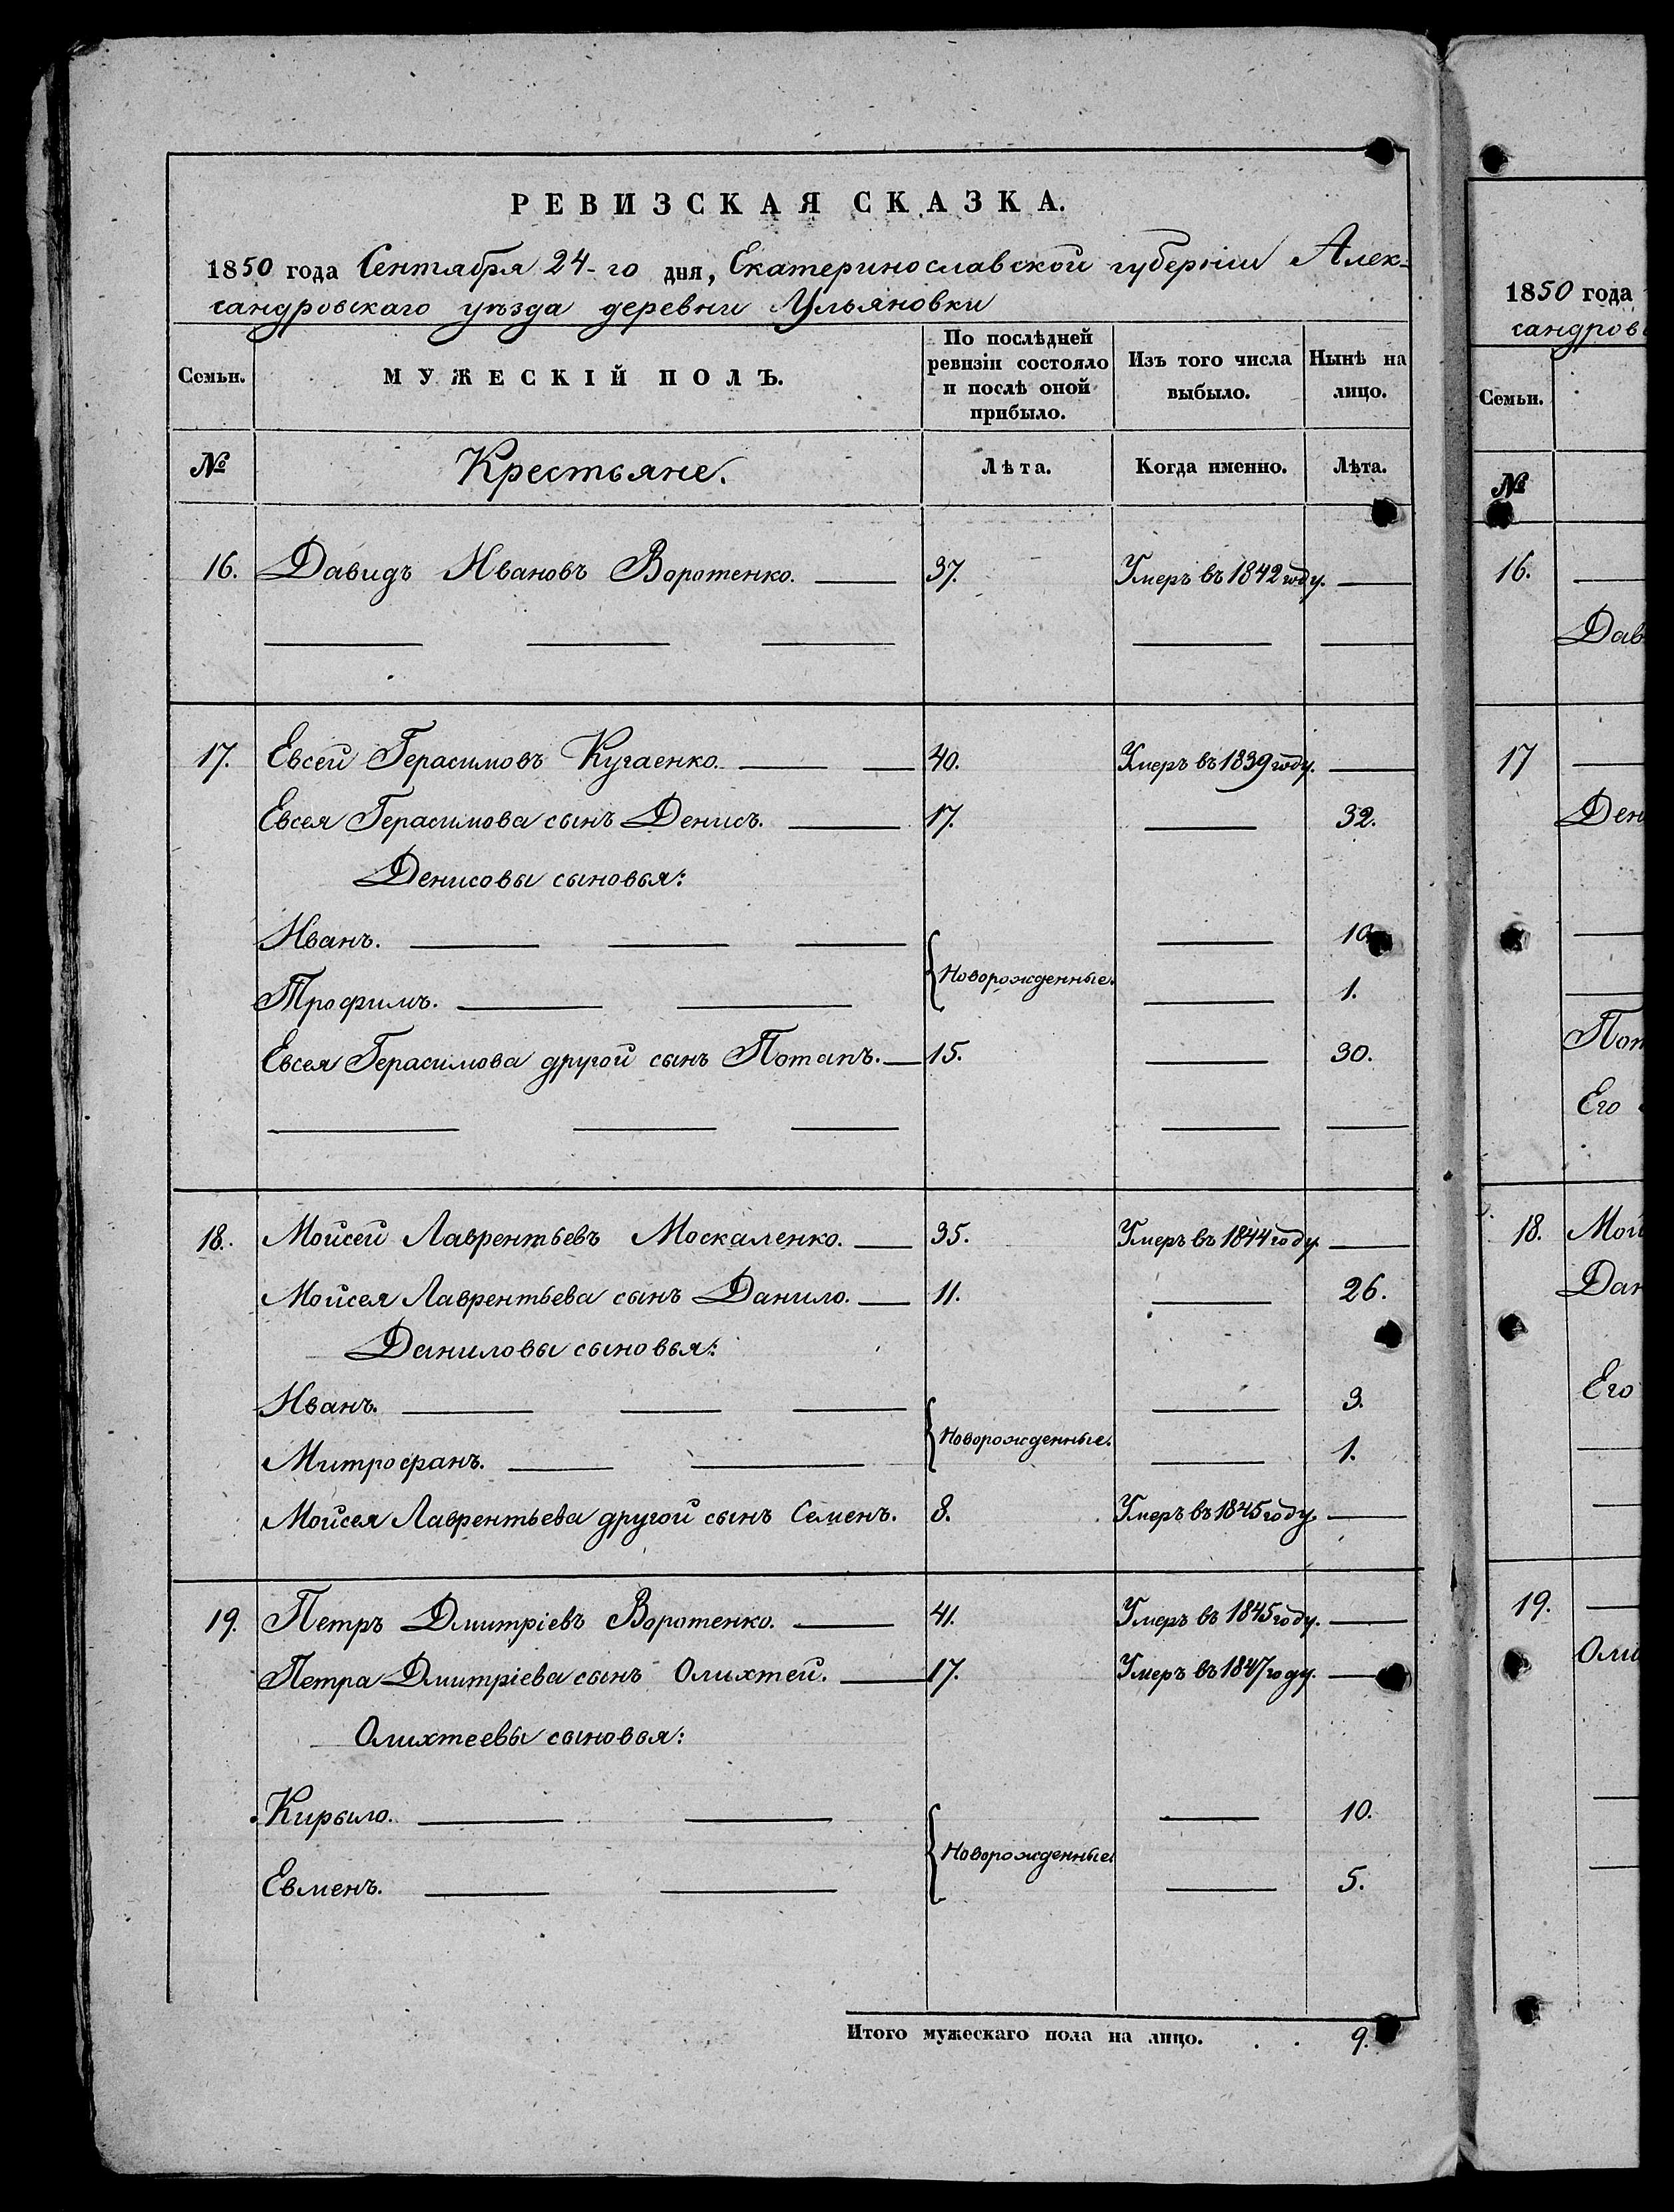 РЕВИЗСКАЯ СКАЗКА.
1850 года Сентября 24-го дня, Екатеринославской губернiи Алек-
сандровскаго уѣзда деревни Ульяновки
Семьи. МУЖЕСКIЙ ПОЛЪ. По послѣдней ревизiи состояло и послѣ оной прибыло. Изъ того числа выбыло. Нынѣ на лицо.
№ Крестьяне. Лѣта. Когда именно. Лѣта.
16. Давидъ Ивановъ Воротенко. 37. Умеръ въ 1842 году.
17. Евсей Герасимовъ Кугаенко. 40. Умеръ въ 1839 году.
Евсея Герасимова сынъ Денисъ. 17. 32.
Денисовы сыновья:
Иванъ. 10.
Новорожденные.
Трофимъ. 1.
Евсея Герасимова другой сынъ Потапъ. 15. 30.
18. Мойсей Лаврентьевъ Москаленко. 35. Умеръ въ 1844 году.
Мойсея Лаврентьева сынъ Данило. 11. 26.
Даниловы сыновья:
Иванъ. 3.
Новорожденные.
Митрофанъ. 1.
Мойсея Лаврентьева другой сынъ Семенъ. 8. Умеръ въ 1845 году.
19. Петръ Дмитрiевъ Воротенко. 41. Умеръ въ 1845 году.
Петра Дмитрiева сынъ Олихтей. 17. Умеръ въ 1847 году.
Олихтеевы сыновья:
Кирыло. 10.
Новорожденные.
Евменъ. 5.
Итого мужескаго пола на лицо. . . 9.
1850 года
сандров
Семьи.
№
16.
Дав
17
Ден
Пот
Его
18. Мой
Дан
Его
19.
Оли